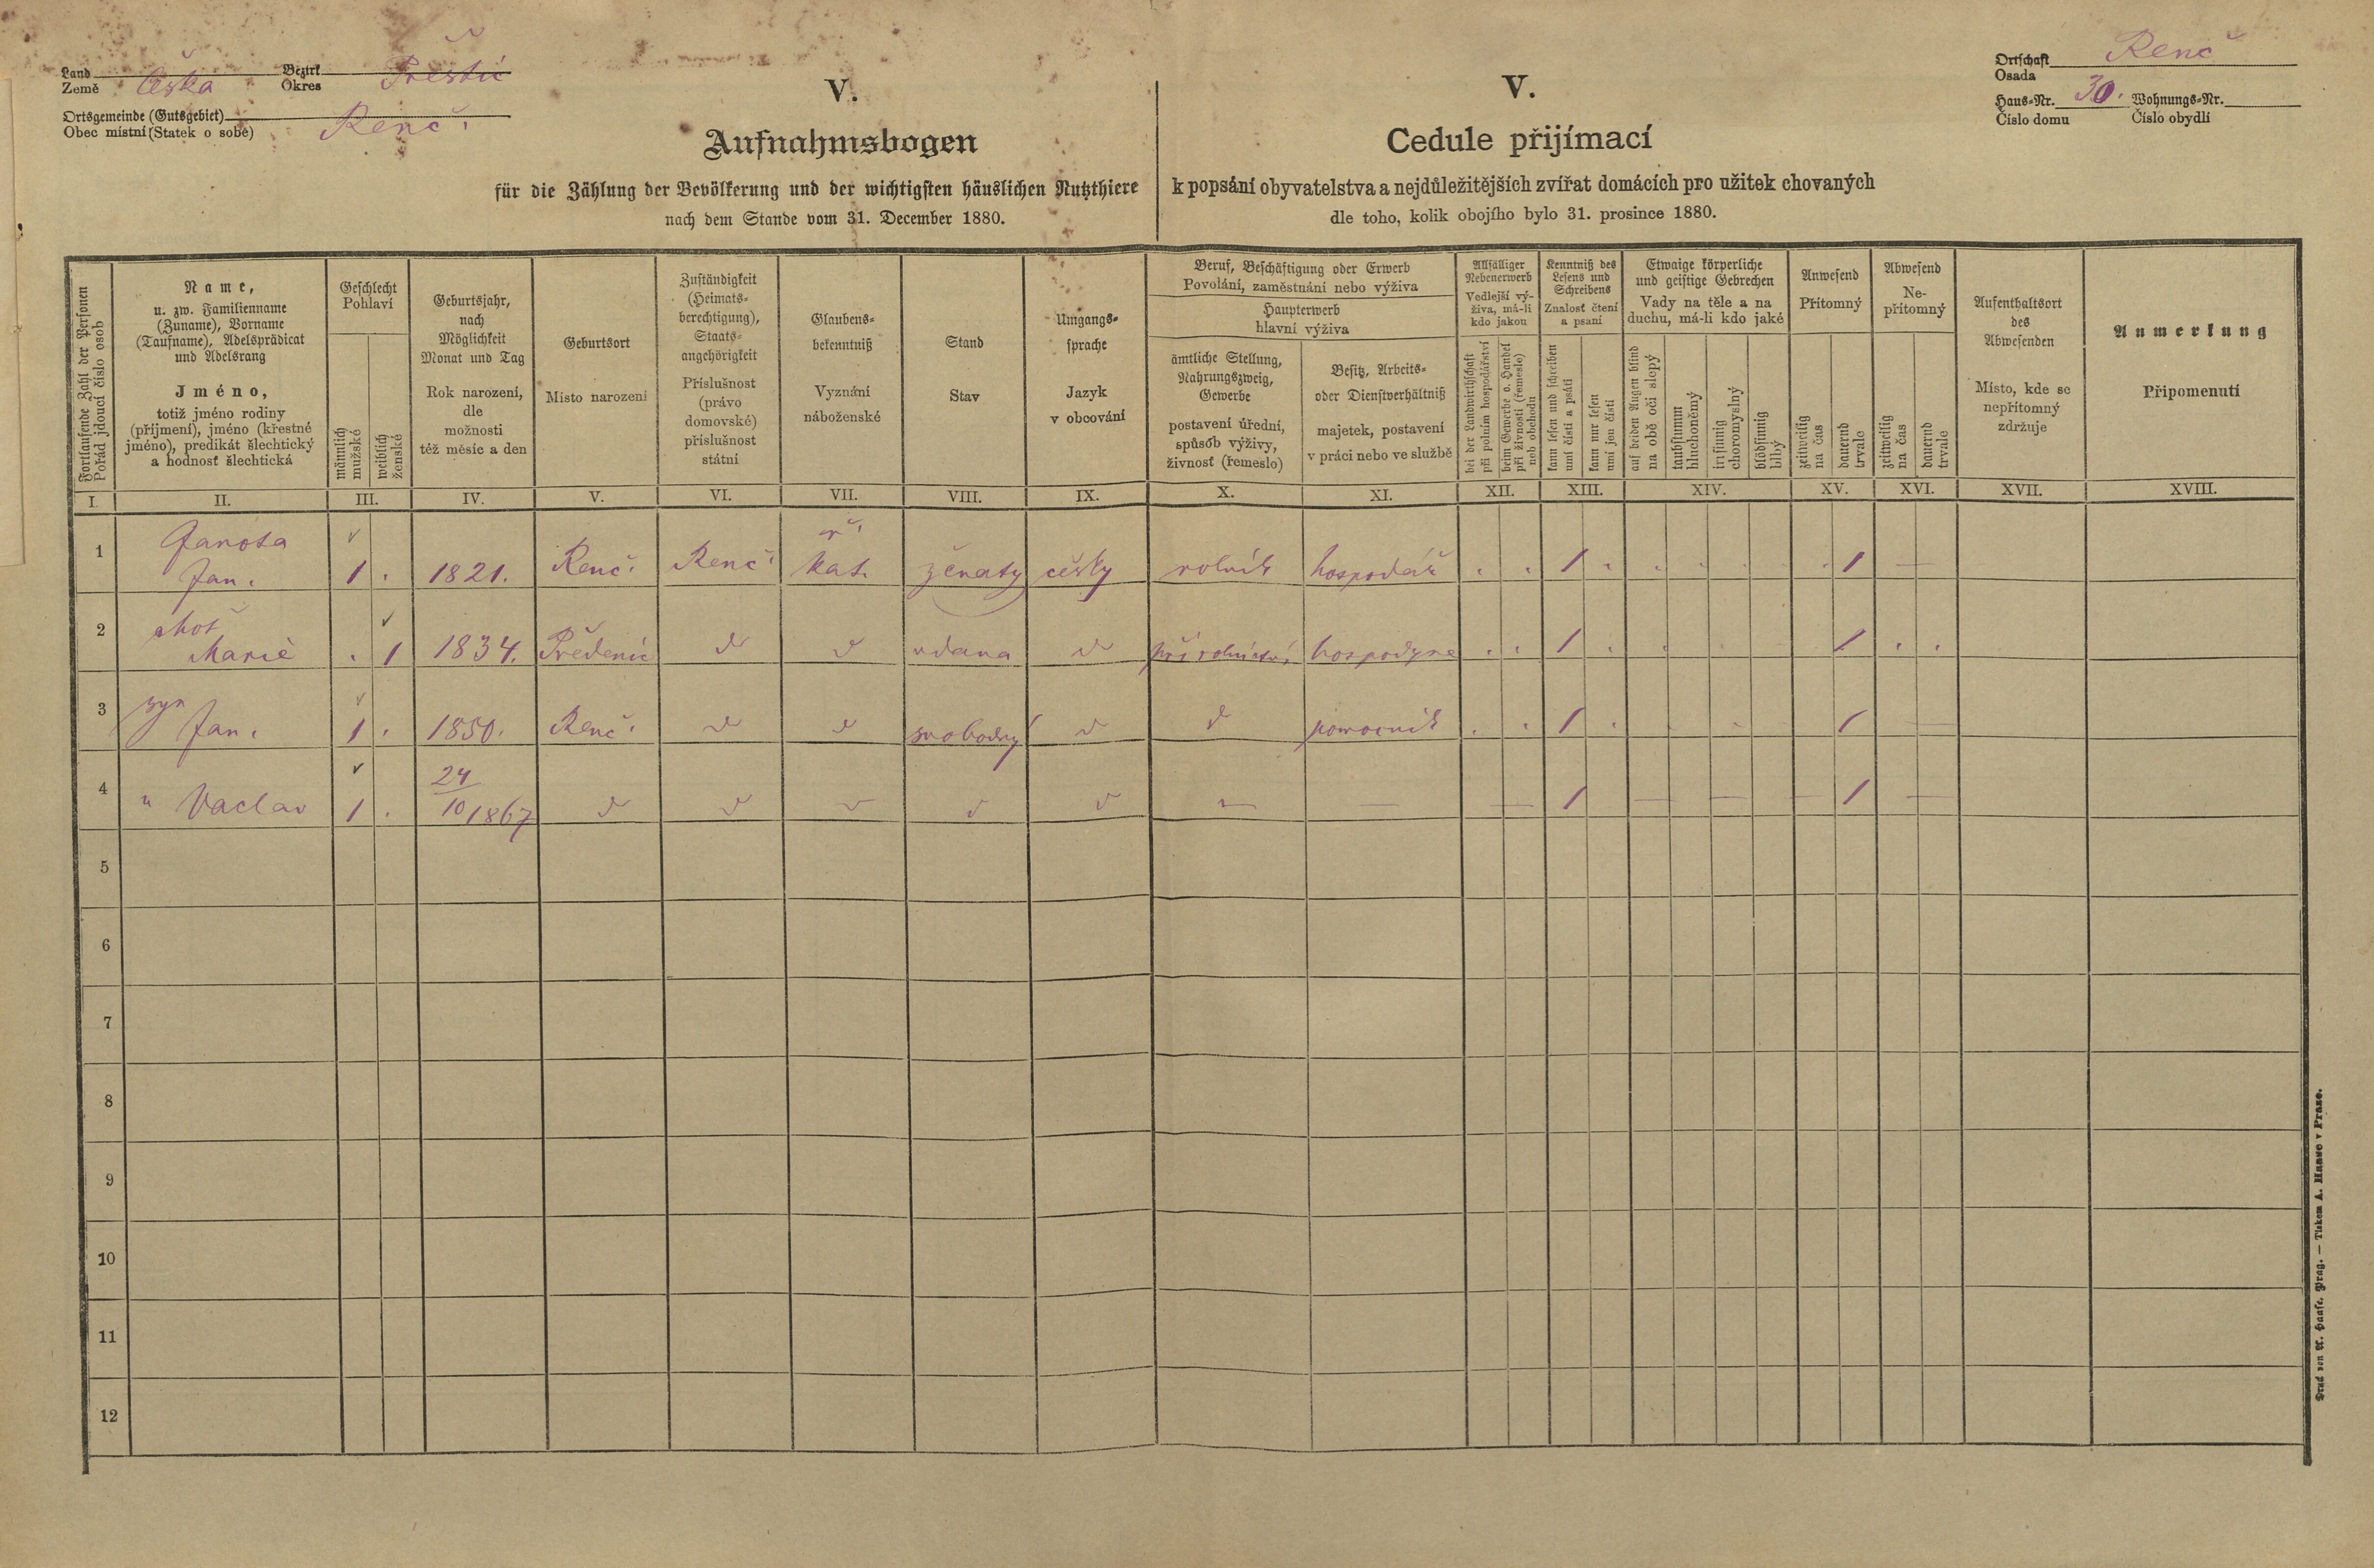 Land Bezirk
Země Česka Okres Přeštic
Ortsgemeinde (Gutsgebiet)
Obec místní (Statek o sobě) Renč.
V.
Aufnahmsbogen
für die Zählung der Bevölkerung und der wichtigsten häuslichen Nutzthiere
nach dem Stande vom 31. December 1880.
V.
Cedule přijímací
k popsání obyvatelstva a nejdůležitějších zvířat domácích pro užitek chovaných
dle toho, kolik obojího bylo 31. prosince 1880.
Ortschaft Renč
Osada
Haus-Nr. 30. Wohnungs-Nr.
Číslo domu Číslo obydlí
Fortlaufende Zahl der Personen
Pořád jdoucí číslo osob
Name,
u. zw. Familienname
(Zuname), Vorname
(Taufname), Adelsprädicat
und Adelsrang
Jméno,
totiž jméno rodiny
(příjmení), jméno (křestné
jméno), predikát šlechtický
a hodnosť šlechtická
Geschlecht
Pohlaví
männlich
mužské
weiblich
ženské
Geburtsjahr,
nach
Möglichkeit
Monat und Tag
Rok narození,
dle
možnosti
též měsíc a den
Geburtsort
Místo narození
Zuständigkeit
(Heimats-
berechtigung),
Staats-
angehörigkeit
Příslušnost
(právo
domovské)
příslušnost
státní
Glaubens-
bekenntniß
Vyznání
náboženské
Stand
Stav
Umgangs-
sprache
Jazyk
v obcování
Beruf, Beschäftigung oder Erwerb
Povolání, zaměstnání nebo výživa
Haupterwerb
hlavní výživa
ämtliche Stellung,
Nahrungszweig,
Gewerbe
postavení úřední,
způsob výživy,
živnosť (řemeslo)
Besitz, Arbeits-
oder Dienstverhältniß
majetek, postavení
v práci nebo ve službě
Allfälliger
Nebenerwerb
Vedlejší vý-
živa, má-li
kdo jakou
bei der Landwirthschaft
při polním hospodářství
beim Gewerbe o. Handel
při živnosti (řemesle)
neb obchodu
Kenntniß des
Lesens und
Schreibens
Znalosť čtení
a psaní
kann lesen und schreiben
umí čísti a psáti
kann nur lesen
umí jen čísti
Etwaige körperliche
und geistige Gebrechen
Vady na těle a na
duchu, má-li kdo jaké
auf beiden Augen blind
na obě oči slepý
taubstumm
hluchoněmý
irrsinnig
choromyslný
blödsinnig
blbý
Anwesend
Přítomný
zeitweilig
na čas
dauernd
trvale
Abwesend
Ne-
přítomný
zeitweilig
na čas
dauernd
trvale
Aufenthaltsort
des
Abwesenden
Místo, kde se
nepřítomný
zdržuje
Anmerkung
Připomenutí
I. II. III. IV. V. VI. VII. VIII. IX. X. XI. XII. XIII. XIV. XV. XVI. XVII. XVIII.
1 Janota ř.
Jan. 1 . 1821. Renč. Renč. kat. ženatý český rolník hospodář . . 1 . . . . . . 1 —
2 choť
Marie . 1 1834. Předenic d d vdana d při rolnictví hospodyne . . 1 . . . . 1 . .
3 syn
Jan. 1 . 1850. Renč. d d svobodný d d pomocník . . 1 . . . . 1 —
4 24
" Vaclav 1 . 10 1867 d d d d d — — — 1 — — — 1 —
5
6
7
8
9
10
11
12
Druck von A. Haase, Prag. — Tiskem A. Haase v Praze.